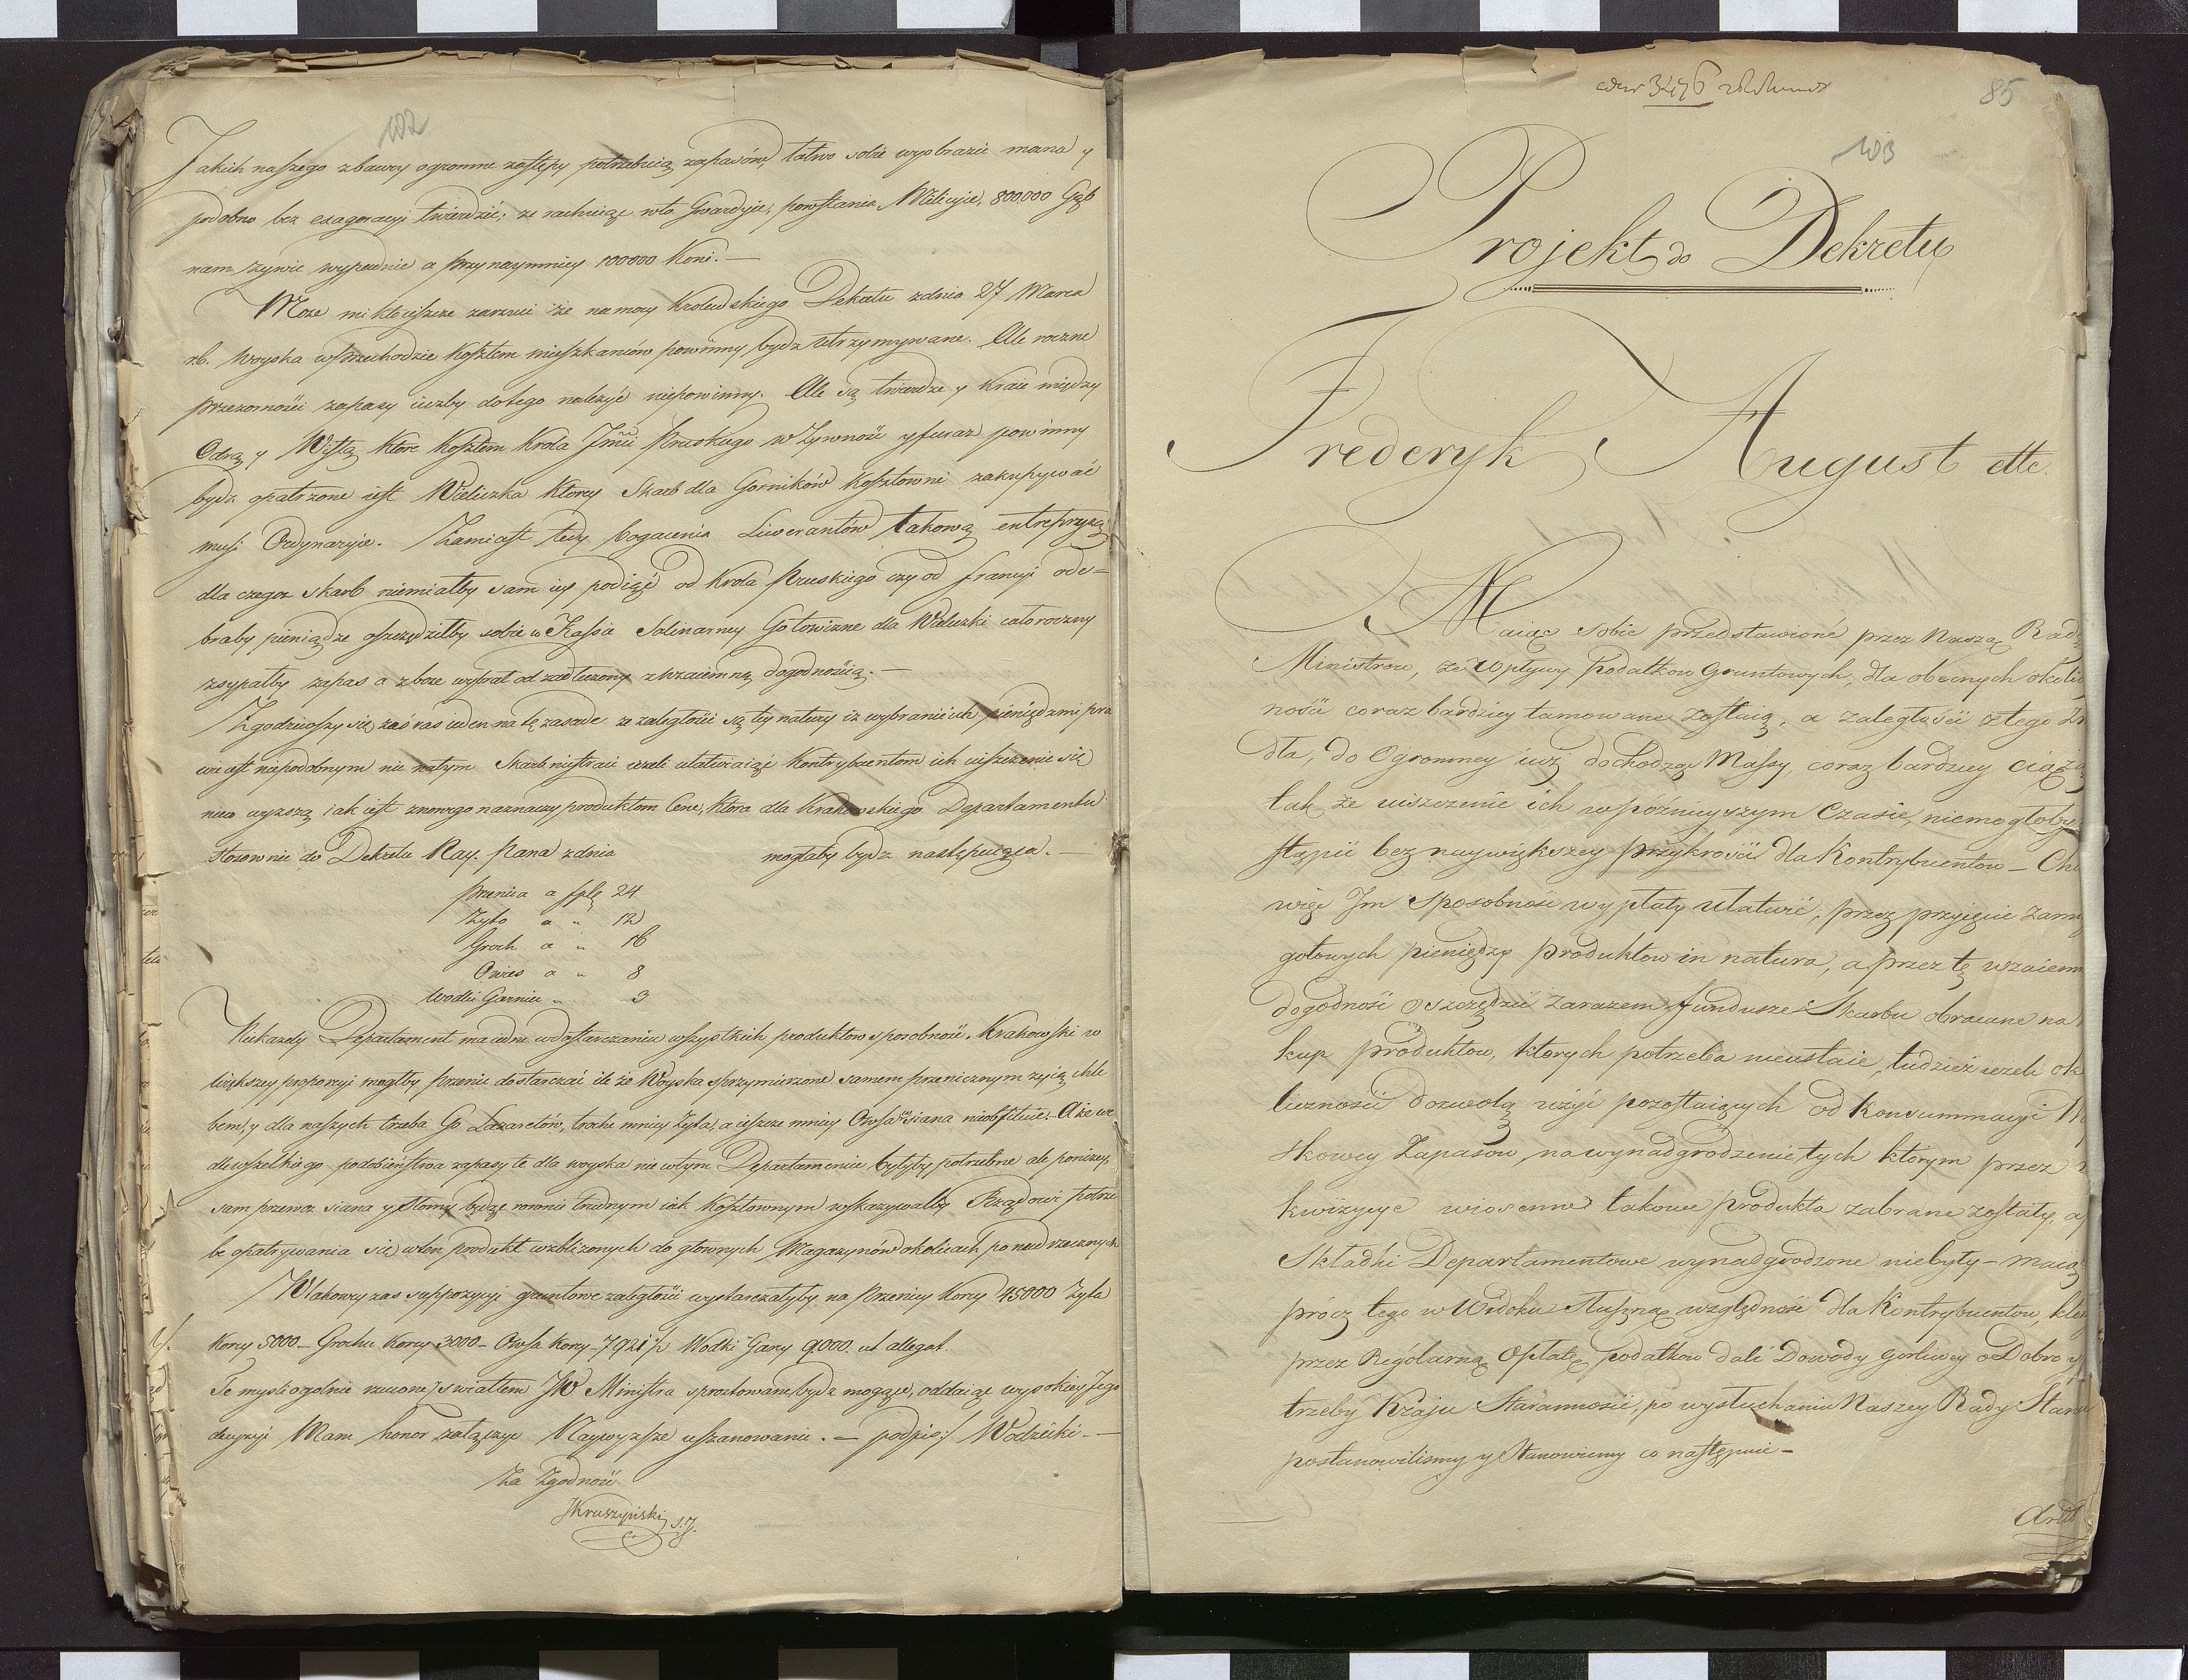 102
Jakich naszego zbawcy ogromne zastępy potrzebuią zapasów, łatwo sobie wyobrazić mozna y
podobno bez exageracyi twierdzić; ze rachuiąc w to Gwardyie, powstania, Milicyie, 800,000 Gęb
nam zywić wypadnie a przynaymniey 100000 Koni. —
Moze mi kto ieszcze zarzuci ze na mocy Krolewskiego Dekretu z dnia 27 Marca
r.b. Woyska w przechodzie kosztem mieszkancow powinny bydz utrzymywane. Ale roczne
przezornosci zapasy iuzby do tego nalezyć niepowinny. Ale są twierdze y kraie między
Odrą y Wisłą ktore kosztem Krola Jmci Pruskiego w Zywnosc y furaz powinny
bydz opatrzone iest Wieliczka ktorey Skarb dla Gorników kosztowni zakupywać
musi Ordynaryie. Zamiast tedy bogacenia Liwerantów takową entrepryzą
dla czegoz skarb niemiałby sam iey podiąć od Krola Pruskiego czy od francyi ode=
brałby pieniądze oszczędziłby sobie w Kassie Salinarney Gotowiznę dla Wieliczki całoroczny
zsypałby zapas a zboze wybrał od zadłuzony z wzaiemną dogodnością. —
Zgodziwszy się zas raz ieden na tę zasade ze zaległosci są tey natury iz wybranie ich pieniędzmi pra
wie iest niepodobnym nic na tym Skarb niestraci iezeli ułatwiaiąc Kontrybuentom ich uiszczenie się
nieco wyzszą iak iest znowego naznaczy produktom Cenę, ktora dla Krakowskiego Departamentu
stosownie do Dekretu Nay. Pana z dnia mogłaby bydz następuiąca. —
Pszenica a fple 24
Zyto a " 12
Groch a " 16
Owies a " 8
Wodki Garniec " 3
Niekazdy Departament ma iedne w dostarczaniu wszystkich produktow sposobnosć. Krakowski w
większey proporcyi mogłby pszenic dostarczać ile że Woyska sprzymierzone samem pszenicznym zyią chle
bem, y dla naszych trzeba Go Lazaretów, troche mniey Zyta, a ieszcze mniey Owsa siana nieobfituie. A że we
dle wszelkiego podobieństwa zapasy te dla woyska nie w tym Departamencie byłyby potrzebne ale ponizey,
sam przewoz siana y słomy będąc rownie trudnym iak kosztownym wskazywałby Rządowi potrze
be opatrywania się w ten produkt w zblizonych do głownych Magazynów okolicach po nad rzecznych
W takowey zas suppozycyi gruntowe zaległosci wystarczałyby na Pszenicy Korcy 45000 Zyta
Korcy 5000 — Grochu Korcy 3000 — Owsa Korcy — 7921 ½ Wodki Gancy 9000. ut allegat.
Te mysli ogolnie rzucone, swiatłem JW Ministra sprostowane bydz mogące, oddaiąc wysokiey Jego
decyzyi Mam honor załączyc Naywyzsze uszanowanie. — podpis:/ Wodzicki —
Za Zgodność
JKruszyński S.J.
3476
85
103
Projekt do Dekretu
Frederyk August ettc.
Maiąc sobie przedstawione przez Naszą Radę
Ministrow, że Wpływy Podatkow Gruntowych, dla obecnych okolicz
ności coraz bardziey tamowane zostaią, a zaległości z tego Zrо
dła, do Ogromney iuż dochodząc Massy, coraz bardziey ciążą
tak że uiszczenie ich w późnieyszym Czasie, niemogłoby
stąpić bez naywiększey przykrości dla Kontrybuentow — Chc
więc Im sposobność wypłaty ułatwić, przez przyięcie zami
gotowych pieniędzy Produktow in natura, a przez tę wzaiemn
dogodność oszczędzić zarazem fundusze Skarbu obracane na
kup produktow, których potrzeba nieustaie, tudzież iezeli oko
liczności dozwolą użyć pozostaiących od Konsummacyi W
skowey Zapasow, na wynadgrodzenie tych którym przez
kwizycye wiosenne takowe produkta zabrane zostały, a
Składki Departamentowe wynadgrodzone niebyły — maiąc
prócz tego w Widoku słuszną względność dla Kontrybuentow, którz
przez Regularną Opłatę podatkow dali Dowody gorliwey o Dobro y
trzeby Kraju Staranności, po wysłuchaniu Naszey Rady Stanu
postanowilismy y Stanowiemy co następuie —
Art